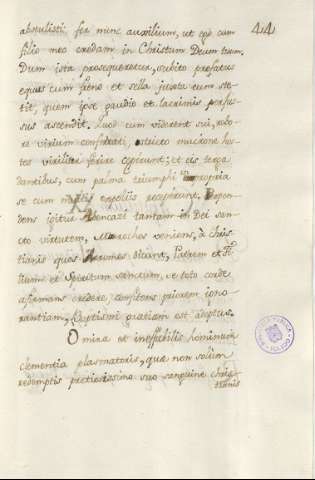 44
abstulisti: fer nunc auxilium, ut ego cum
filio meo credam in Christum Deum tuum.
Dum ista prosequeretur, subito prefatus
equus cum freno et sella juxta eum ste-
tit, quem ipse gaudio et lacrimis perfu-
sus ascendit. Quod cum viderent sui, robo-
re virium confortati, stricto mucrone hos-
tes viriliter ferire ceperunt; et eis terga
dantibus, cum palma triumphi propria
se cum multis spoliis receperunt.
dens igitur Abencazel tantam in Dei san-
cto virtutem, Marochos veniens, à chris-
tianis quos dicunt, Patrem et Fi-
lium et Spiritum sanctum, se toto corde
affirmans credere, confitens priorem igno-
rantiam, Baptismi gratiam est adeptus.
O mira et ineffabilis hominum
clementia plasmatoris, quæ non solum
redemptis pretiosissimo suo sanguine chris-
tianis